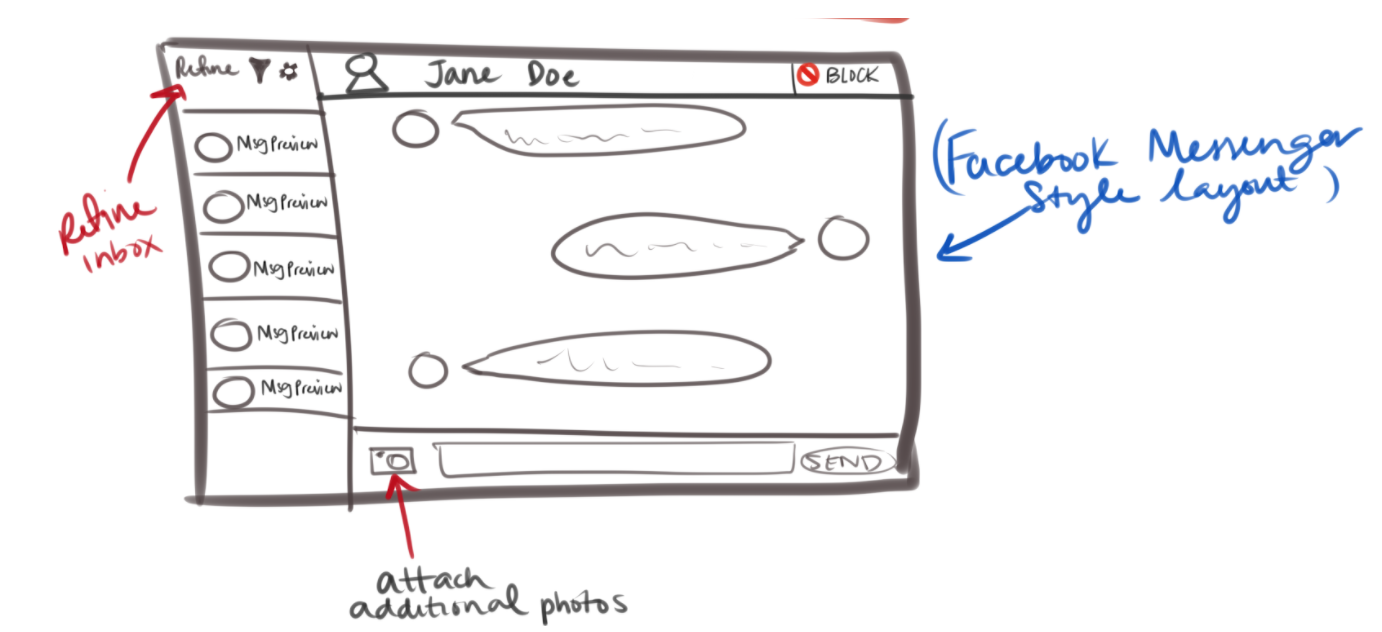 Refine
Jane Doe
BLOCK
Msg Preview
Msg Preview
Msg Preview
Msg Preview
Msg Preview
SEND
Refine
inbox
(Facebook Messenger
Style layout)
attach
additional photos